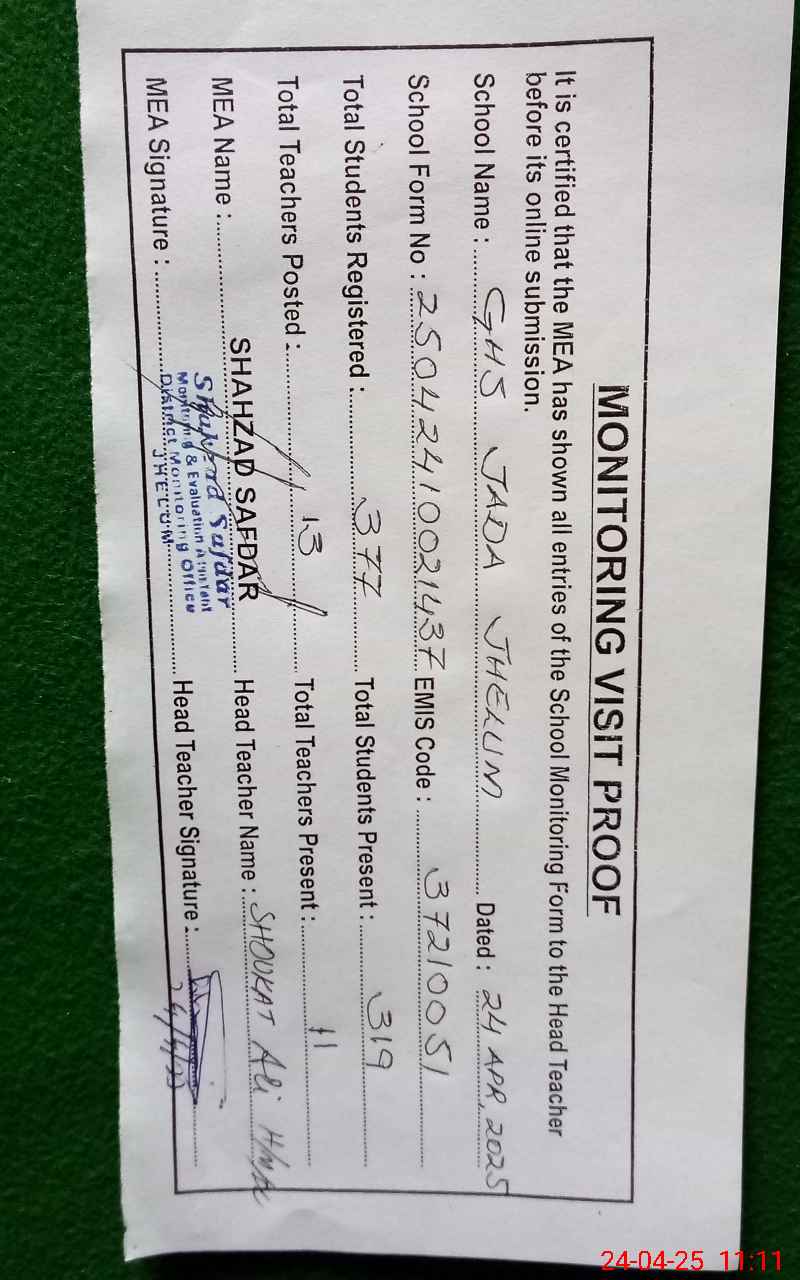 MONITORING VISIT PROOF
It is certified that the MEA has shown all entries of the School Monitoring Form to the Head Teacher
before its online submission.
School Name : GHS JADA JHELUM Dated : 24 APR, 2025
School Form No : 25042410021437 EMIS Code : 37210051
Total Students Registered : 377 Total Students Present : 319
Total Teachers Posted : 13 Total Teachers Present : 11
MEA Name : SHAHZAD SAFDAR Head Teacher Name : SHOUKAT Ali H/M
MEA Signature : Head Teacher Signature :
Shahzad Safdar
Monitoring & Evaluation Assistant
District Monitoring Office
JHELUM
24-04-25 11:11